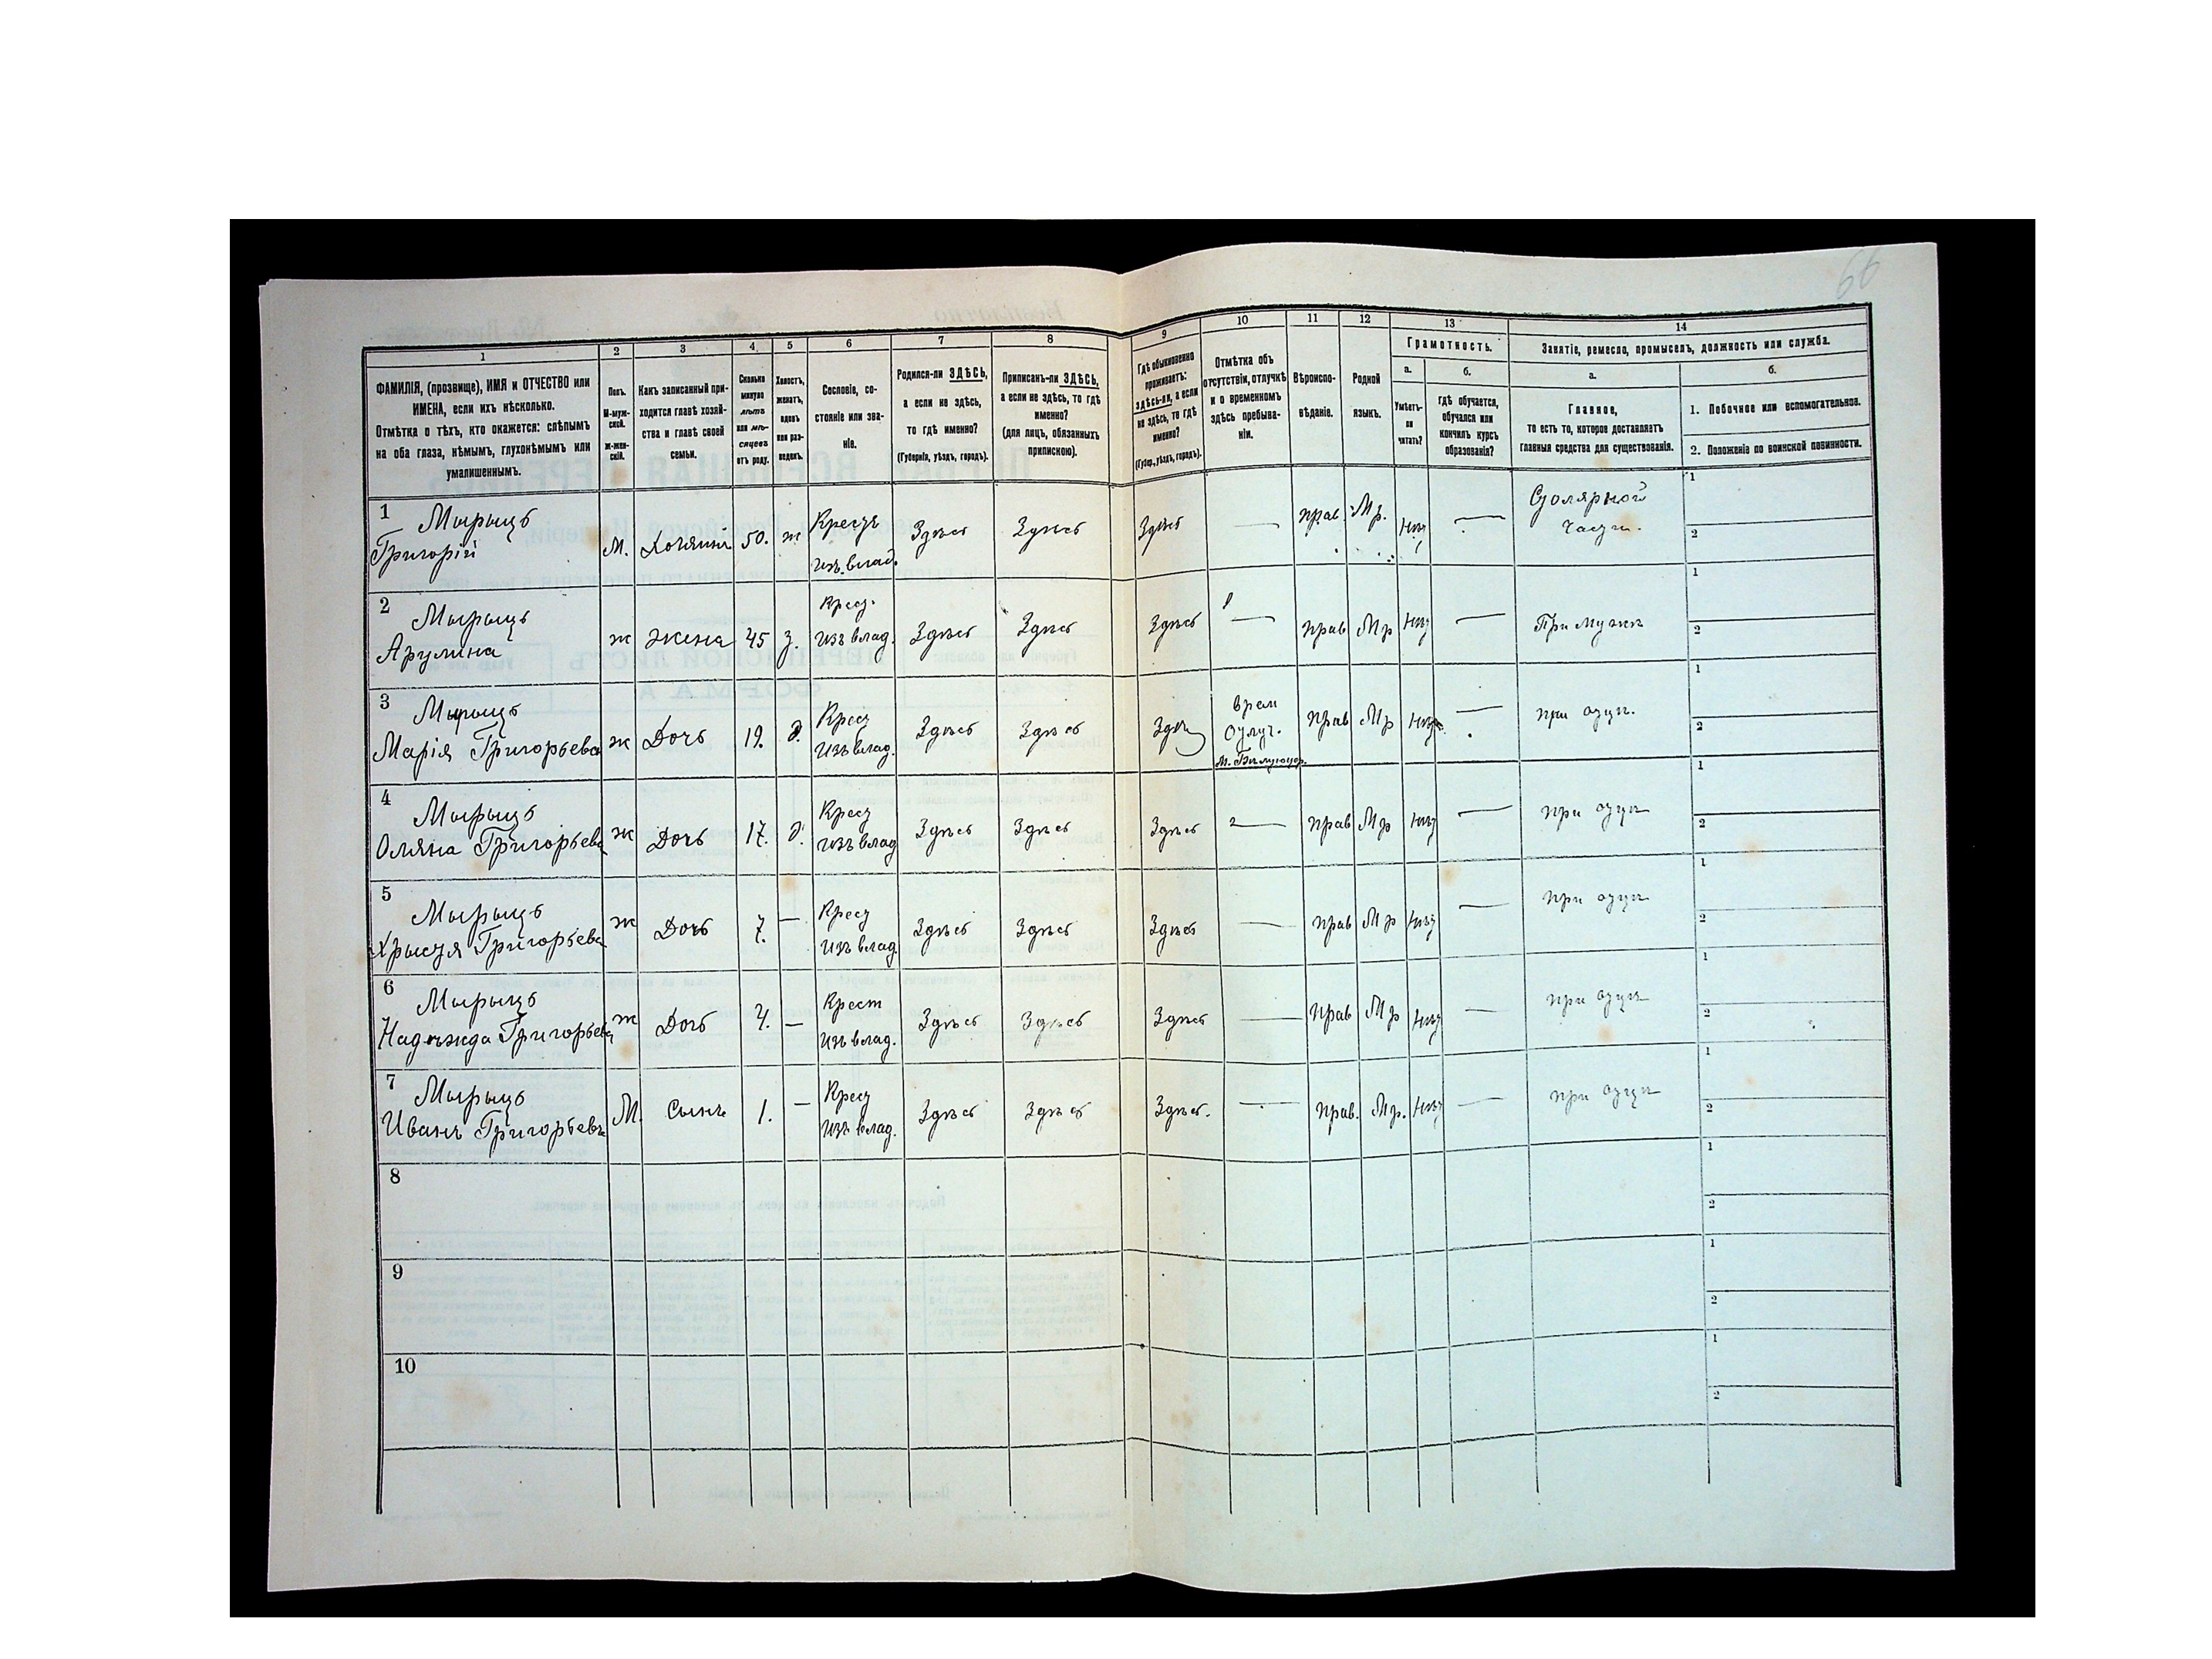 66
1
2
3
4
5
6
7
8
9
10
11
12
13
14
ФАМИЛІЯ, (прозвище), ИМЯ и ОТЧЕСТВО или
ИМЕНА, если ихъ нѣсколько.
Отмѣтка о тѣхъ, кто окажется: слѣпымъ
на оба глаза, нѣмымъ, глухонѣмымъ или
умалишеннымъ.
Полъ.
М-муж-
ской.
Ж-жен-
скій.
Какъ записанный при-
ходится главѣ хозяй-
ства и главѣ своей
семьи.
Сколько
минуло
лѣтъ
или мѣ-
сяцевъ
отъ роду.
Холостъ,
женатъ,
вдовъ
или раз-
веденъ.
Сословіе, со-
стояніе или зва-
ніе.
Родился-ли ЗДѢСЬ,
а если не здѣсь,
то гдѣ именно?
(Губернія, уѣздъ, городъ).
Приписанъ-ли ЗДѢСЬ,
а если не здѣсь, то гдѣ
именно?
(для лицъ, обязанныхъ
припискою).
Гдѣ обыкновенно
проживаетъ:
здѣсь-ли, а если
не здѣсь, то гдѣ
именно?
(Губер., уѣздъ, городъ).
Отмѣтка объ
отсутствіи, отлучкѣ
и о временномъ
здѣсь пребыва-
ніи.
Вѣроиспо-
вѣданіе.
Родной
языкъ.
Грамотность.
а.
Умѣетъ-
ли
читать?
б.
гдѣ обучается,
обучался или
кончилъ курсъ
образованія?
Занятіе, ремесло, промыселъ, должность или служба.
а.
Главное,
то есть то, которое доставляетъ
главныя средства для существованія.
б.
1. Побочное или вспомогательное.
2. Положеніе по воинской повинности.
1 Мырыцъ
Григорій
М. Хозяинъ 50. ж
Крестъ
изъ влад.
Здѣсь Здѣсь Здѣсь — прав. Мр. нѣт —
Столярной
части.
1
2
2 Мырыцъ
ж жена 45 з.
Крест.
изъ влад.
Здѣсь Здѣсь Здѣсь — прав Мр нѣт —
При мужѣ
1
2
3 Мырыцъ
Марія Григорьева
ж Дочь 19. д.
Крест
изъ влад.
Здѣсь Здѣсь
врем
отлуч.
прав Мр нѣт —
при отцѣ.
1
2
4 Мырыцъ
Оляна Григорьева
ж Дочь 17. д.
Крест
изъ влад
Здѣсь Здѣсь Здѣсь — прав Мр нѣт —
при отцѣ
1
2
5 Мырыцъ
Хрыстя Григорьева
ж Дочь 7. —
Крест
изъ влад.
Здѣсь Здѣсь Здѣсь — прав Мр нѣт —
при отцѣ
1
2
6 Мырыцъ
Надѣжда Григорьева
ж Дочь 4. —
Крест
изъ влад.
Здѣсь Здѣсь Здѣсь — прав Мр нѣт —
при отцѣ
1
2
7 Мырыцъ
Иванъ Григорьевъ
М. Сынъ 1. —
Крест
изъ влад.
Здѣсь Здѣсь Здѣсь. — прав. Мр. нѣт —
при отцѣ
1
2
8
1
2
9
1
2
10
1
2